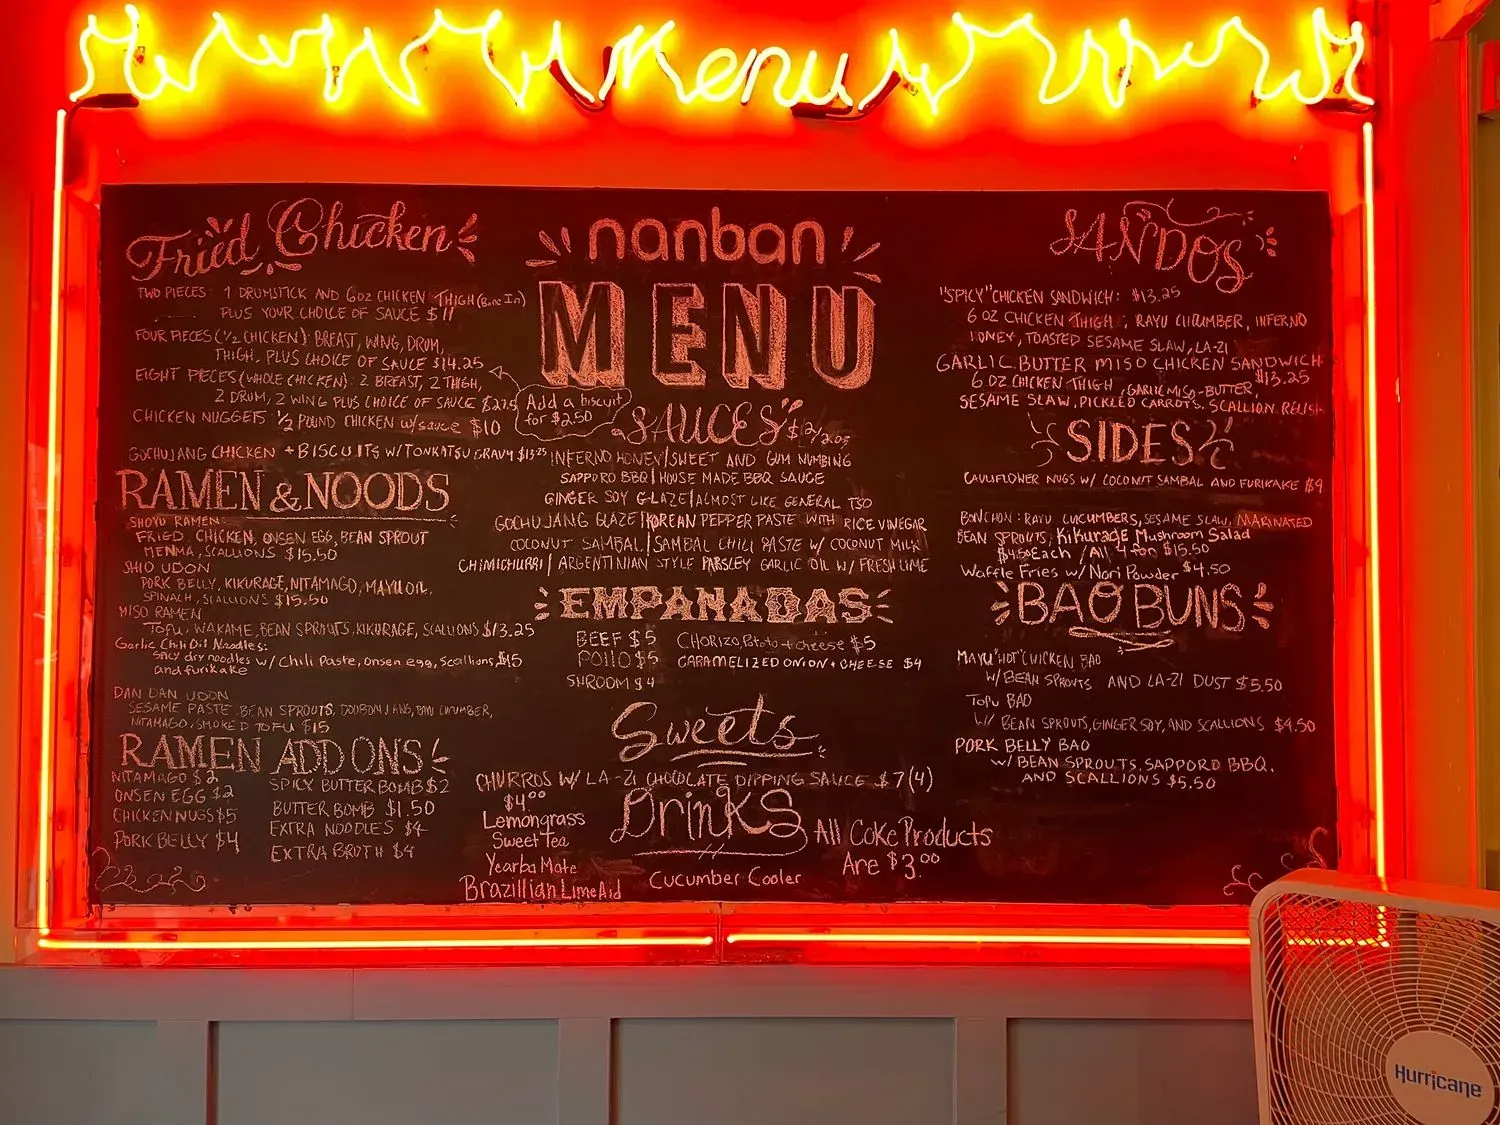 Menu
Fried Chicken
TWO PIECES: 1 DRUMSTICK AND 6 OZ CHICKEN THIGH (Bone In)
PLUS YOUR CHOICE OF SAUCE $11
FOUR PIECES (1/2 CHICKEN): BREAST, WING, DRUM,
THIGH, PLUS CHOICE OF SAUCE $14.25
EIGHT PIECES (WHOLE CHICKEN): 2 BREAST, 2 THIGH,
2 DRUM, 2 WING PLUS CHOICE OF SAUCE
Add a biscuit
for $2.50
CHICKEN NUGGETS: 1/2 POUND CHICKEN w/sauce $10
GOCHUJANG CHICKEN + BISCUITS W/TONKATSU GRAVY $13.25
RAMEN & NOODS
SHOYU RAMEN:
FRIED CHICKEN, ONSEN EGG, BEAN SPROUT
MENMA, SCALLIONS $15.50
SHIO UDON
PORK BELLY, KIKURAGE, NITAMAGO, MAYU OIL,
SPINACH, SCALLIONS $15.50
MISO RAMEN
TOFU, WAKAME, BEAN SPROUTS, KIKURAGE, SCALLIONS $13.25
Garlic Chili Oil Noodles:
Spicy dry noodles w/ Chili Paste, onsen egg, Scallions, $15
and furikake
DAN DAN UDON
SESAME PASTE, BEAN SPROUTS, RAYU CUCUMBER,
NITAMAGO, SMOKED TOFU $15
RAMEN ADD ONS
NITAMAGO $2
ONSEN EGG $2
CHICKEN NUGS $5
PORK BELLY $4
SPICY BUTTER BOMB $2
BUTTER BOMB $1.50
EXTRA NOODLES $4
EXTRA BROTH $4
nanban
MENU
SAUCES $1/2oz
INFERNO HONEY | SWEET AND GUM NUMBING
SAPPORO BBQ | HOUSE MADE BBQ SAUCE
GINGER SOY GLAZE | ALMOST LIKE GENERAL TSO
GOCHUJANG GLAZE | KOREAN PEPPER PASTE WITH RICE VINEGAR
COCONUT SAMBAL | SAMBAL CHILI PASTE W/ COCONUT MILK
CHIMICHURRI | ARGENTINIAN STYLE PARSLEY GARLIC OIL W/ FRESH LIME
EMPANADAS
BEEF $5
POLLO $5
SHROOM $4
CHORIZO, Potato + cheese $5
CARAMELIZED ONION + CHEESE $4
Sweets
CHURROS W/ LA-ZI CHOCOLATE DIPPING SAUCE $7 (4)
Drinks
$4.00
Lemongrass
Sweet Tea
Yearba Mate
Brazillian LimeAid
Cucumber Cooler
All Coke Products
Are $3.00
SANDOS
"SPICY" CHICKEN SANDWICH: $13.25
6 OZ CHICKEN THIGH, RAYU CUCUMBER, INFERNO
HONEY, TOASTED SESAME SLAW, LA-ZI
GARLIC BUTTER MISO CHICKEN SANDWICH
$13.25
6 OZ CHICKEN THIGH, GARLIC MISO-BUTTER,
SESAME SLAW, PICKLED CARROTS, SCALLION RELISH
SIDES
CAULIFLOWER NUGS W/ COCONUT SAMBAL AND FURIKAKE $9
BONCHON: RAYU CUCUMBERS, SESAME SLAW, MARINATED
BEAN SPROUTS, Kikurage Mushroom Salad
$4.50 Each / All 4 for $15.50
Waffle Fries w/ Nori Powder $4.50
BAO BUNS
MAYU "HOT" CHICKEN BAO
W/ BEAN SPROUTS AND LA-ZI DUST $5.50
TOFU BAO
W/ BEAN SPROUTS, GINGER SOY, AND SCALLIONS $4.50
PORK BELLY BAO
W/ BEAN SPROUTS, SAPPORO BBQ,
AND SCALLIONS $5.50
Hurricane